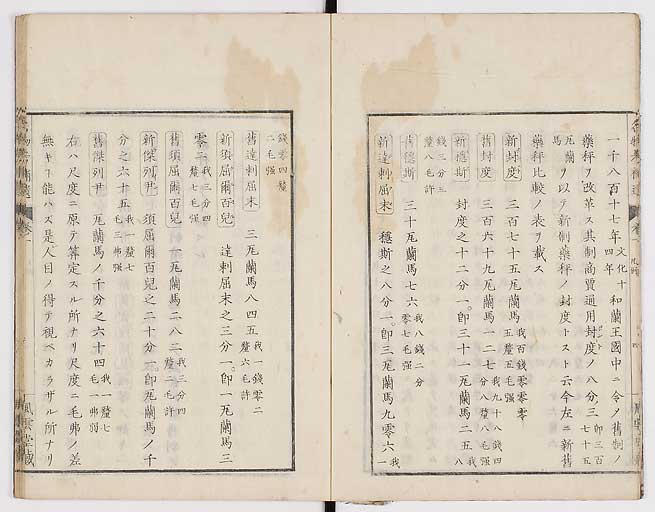 一千八百十七年文化十四年和蘭王國中ニ令ノ舊制ノ
藥秤ヲ改革ス其制商賈通用封度ノ八分三即三百七十五
瓦蘭馬ヲ以テ新制藥秤ノ封度トスト云今左ニ新舊
藥秤比較ノ表ヲ載ス
新封度 三百七十五瓦蘭馬我百錢零零五釐五毛强
舊封度 三百六十九瓦蘭馬一二七我九十八錢四分八釐八毛强
新穩斯 封度之十二分一。即三十一瓦蘭馬二五我八
錢三分三釐八毛許
舊穩斯 三十瓦蘭馬七六我八錢二分零七毛强
新達剌屈末 穩斯之八分一。即三瓦蘭馬九零六我一
錢零四釐二毛强
舊達剌屈末 三瓦蘭馬八四五我一錢零二釐六毛許
新須屈爾百兒 達剌屈末之三分一。即一瓦蘭馬三
零二我三分四釐七毛强
舊須屈爾百兒 一瓦蘭馬二八二我三分四釐二毛許
新傑列尹 須屈爾百兒之二十分一。即瓦蘭馬ノ千
分之六十五我一釐七毛三弗强
舊傑列尹 瓦蘭馬ノ千分之六十四我一釐七毛一弗弱
右ハ尺度ニ原テ算定スル所ナリ尺度ニ毛弗ノ差
無キヿ能ハズ是人目ノ得テ視ベカラザル所ナリ
風雲堂藏